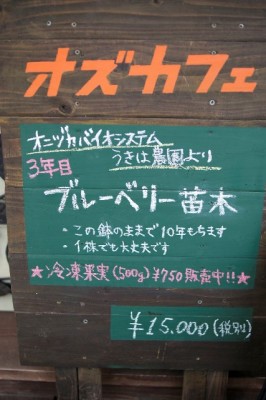 オズカフェ
オニヅカバイオシステム
うきは農園より
3年目
ブルーベリー苗木
・この鉢のままで10年もちます
・1株でも大丈夫です
★冷凍果実(500g)¥750販売中!!★
¥15.000(税別)